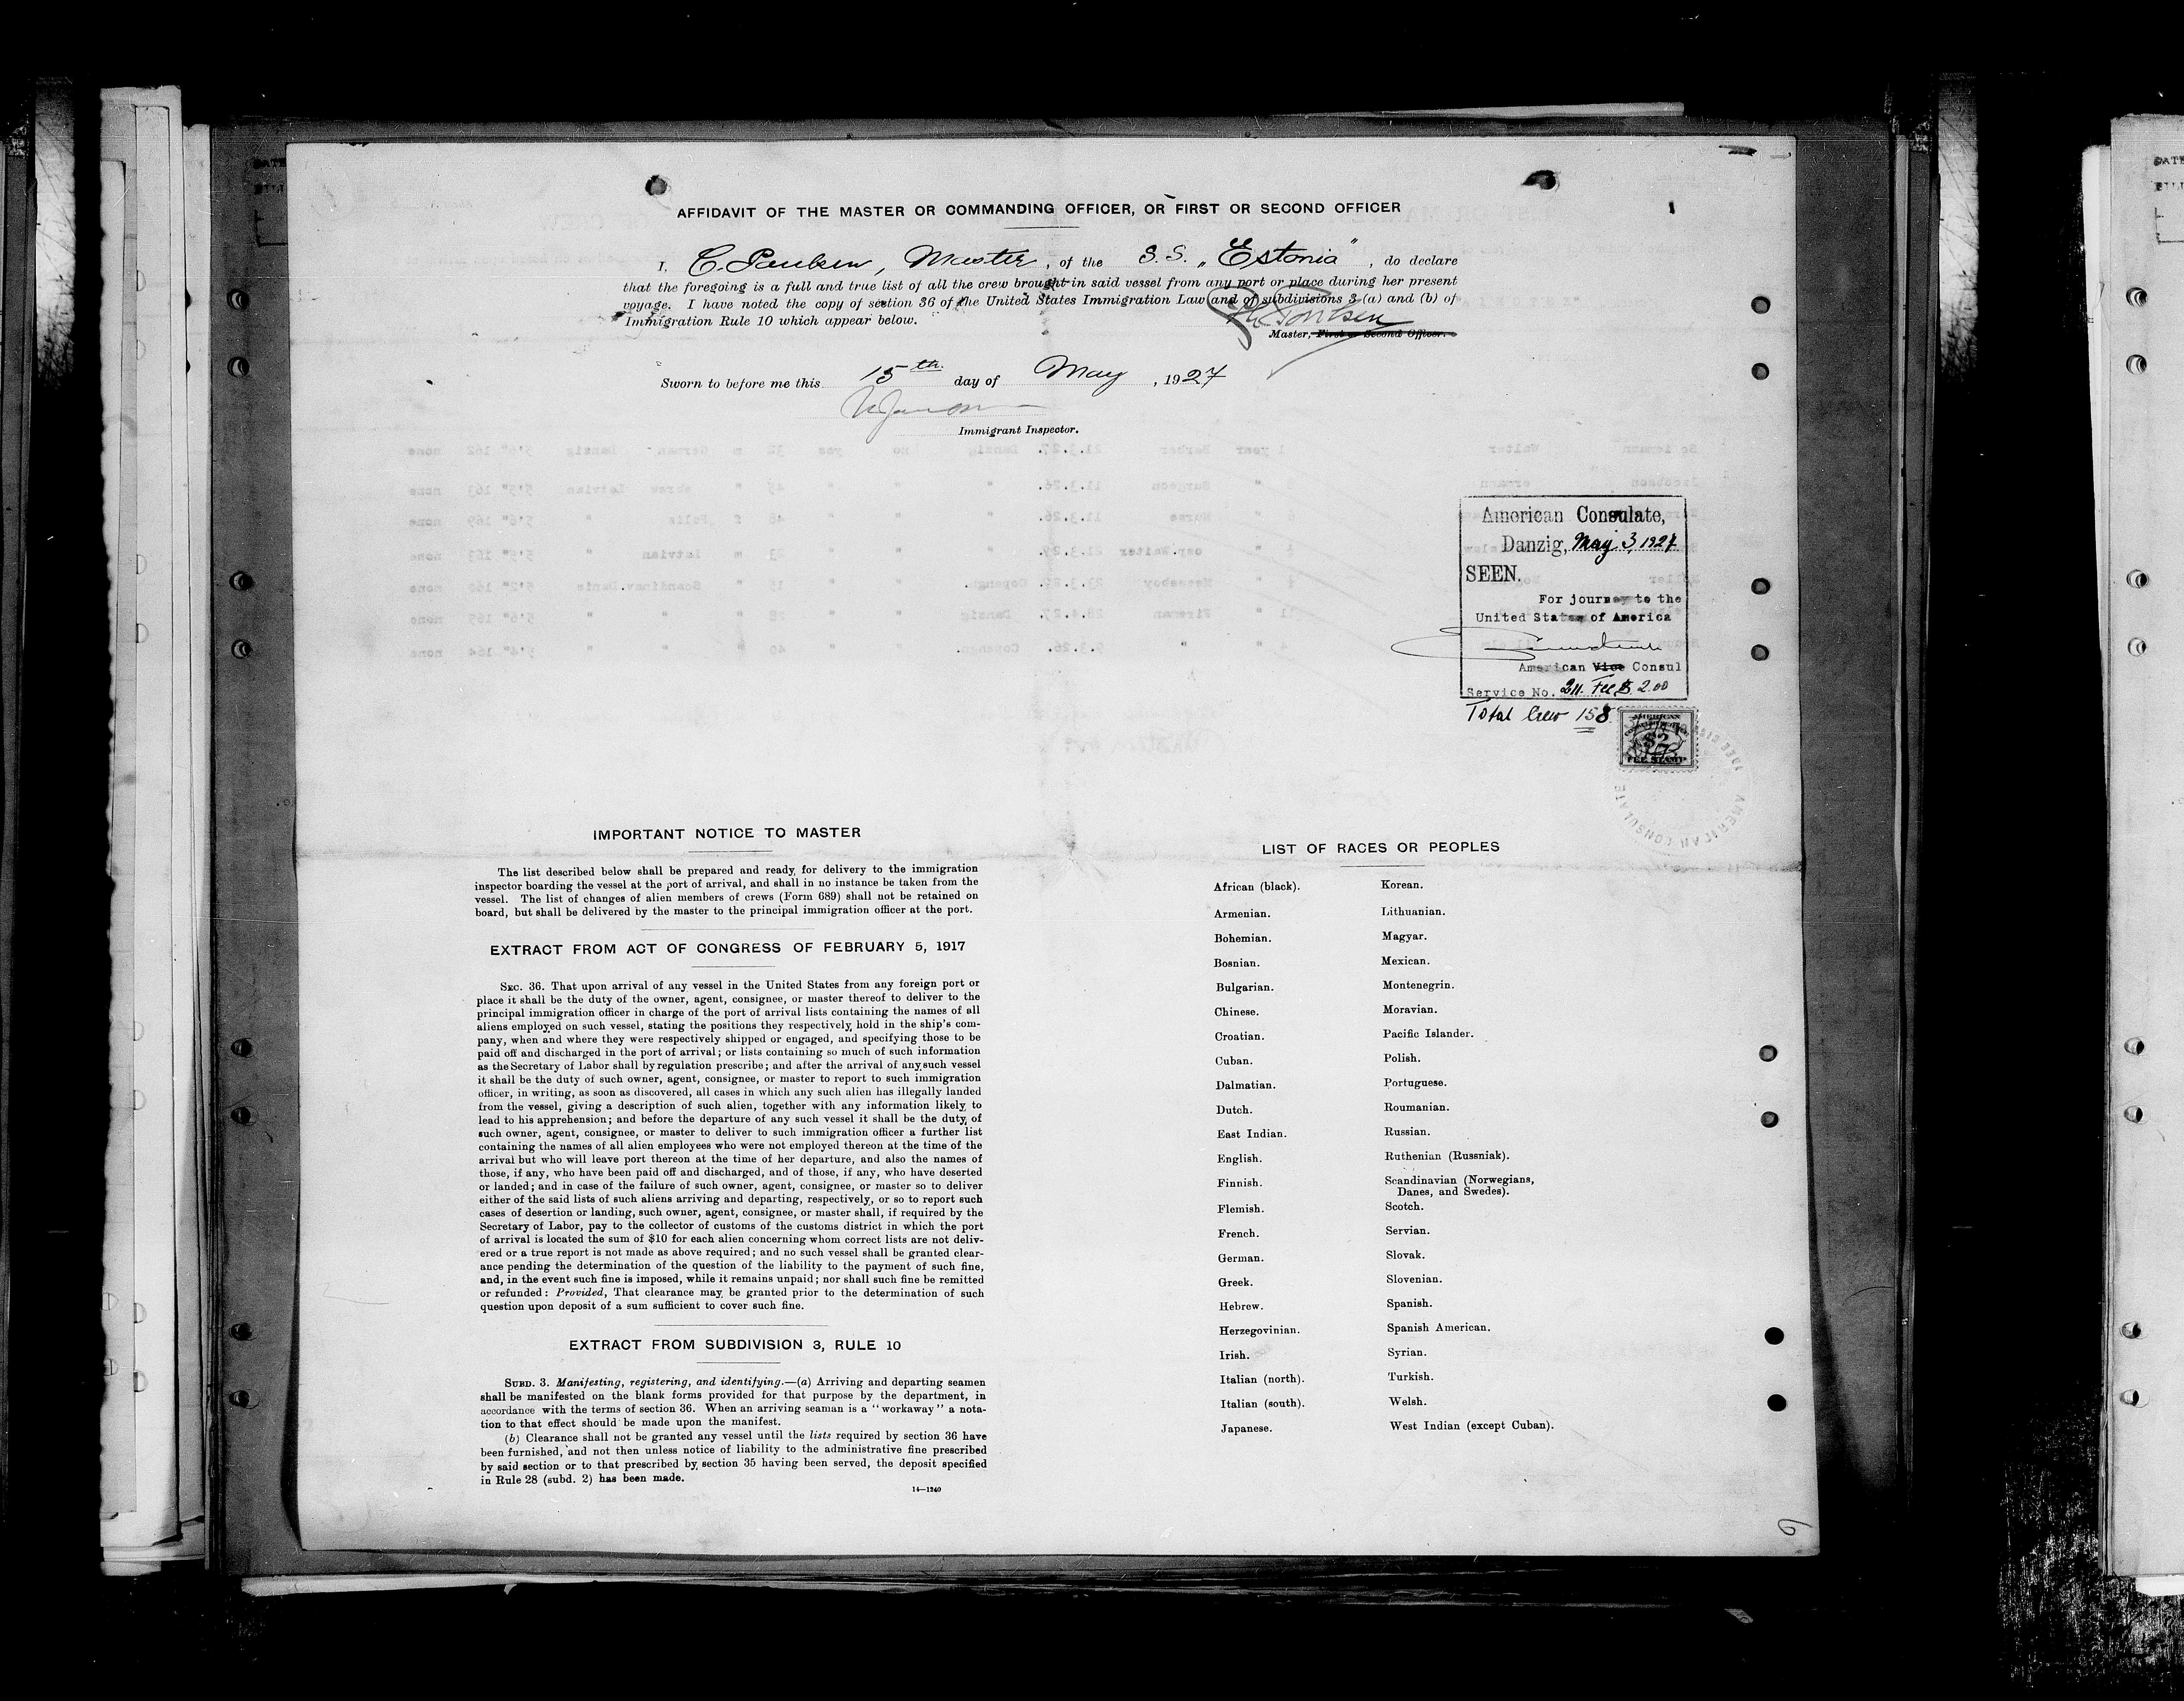 AFFIDAVIT OF THE MASTER OR COMMANDING OFFICER, OR FIRST OR SECOND OFFICER
I, C. Paulsen, Master, of the S.S. „Estonia", do declare
that the foregoing is a full and true list of all the crew brought in said vessel from any port or place during her present
voyage. I have noted the copy of section 36 of the United States Immigration Law and of subdivisions 3 (a) and (b) of
Immigration Rule 10 which appear below.
Master, First or Second Officer.
Sworn to before me this 15th. day of May, 1927
Immigrant Inspector.
American Consulate,
Danzig, May 3, 1927
SEEN.
For journey to the
United States of America
American Vice Consul
Service No. 211. Fee $ 2.00
Total Crew 158
AMERICAN
$2
FEE STAMP
AMERICAN CONSULATE
IMPORTANT NOTICE TO MASTER
The list described below shall be prepared and ready for delivery to the immigration
inspector boarding the vessel at the port of arrival, and shall in no instance be taken from the
vessel. The list of changes of alien members of crews (Form 689) shall not be retained on
board, but shall be delivered by the master to the principal immigration officer at the port.
EXTRACT FROM ACT OF CONGRESS OF FEBRUARY 5, 1917
SEC. 36. That upon arrival of any vessel in the United States from any foreign port or
place it shall be the duty of the owner, agent, consignee, or master thereof to deliver to the
principal immigration officer in charge of the port of arrival lists containing the names of all
aliens employed on such vessel, stating the positions they respectively hold in the ship's com-
pany, when and where they were respectively shipped or engaged, and specifying those to be
paid off and discharged in the port of arrival; or lists containing so much of such information
as the Secretary of Labor shall by regulation prescribe; and after the arrival of any such vessel
it shall be the duty of such owner, agent, consignee, or master to report to such immigration
officer, in writing, as soon as discovered, all cases in which any such alien has illegally landed
from the vessel, giving a description of such alien, together with any information likely to
lead to his apprehension; and before the departure of any such vessel it shall be the duty of
such owner, agent, consignee, or master to deliver to such immigration officer a further list
containing the names of all alien employees who were not employed thereon at the time of the
arrival but who will leave port thereon at the time of her departure, and also the names of
those, if any, who have been paid off and discharged, and of those, if any, who have deserted
or landed; and in case of the failure of such owner, agent, consignee, or master so to deliver
either of the said lists of such aliens arriving and departing, respectively, or so to report such
cases of desertion or landing, such owner, agent, consignee, or master shall, if required by the
Secretary of Labor, pay to the collector of customs of the customs district in which the port
of arrival is located the sum of $10 for each alien concerning whom correct lists are not deliv-
ered or a true report is not made as above required; and no such vessel shall be granted clear-
ance pending the determination of the question of the liability to the payment of such fine,
and, in the event such fine is imposed, while it remains unpaid; nor shall such fine be remitted
or refunded: Provided, That clearance may be granted prior to the determination of such
question upon deposit of a sum sufficient to cover such fine.
EXTRACT FROM SUBDIVISION 3, RULE 10
SUBD. 3. Manifesting, registering, and identifying.—(a) Arriving and departing seamen
shall be manifested on the blank forms provided for that purpose by the department, in
accordance with the terms of section 36. When an arriving seaman is a "workaway" a nota-
tion to that effect should be made upon the manifest.
(b) Clearance shall not be granted any vessel until the lists required by section 36 have
been furnished, and not then unless notice of liability to the administrative fine prescribed
by said section or to that prescribed by section 35 having been served, the deposit specified
in Rule 28 (subd. 2) has been made.
14—1240
LIST OF RACES OR PEOPLES
African (black).
Armenian.
Bohemian.
Bosnian.
Bulgarian.
Chinese.
Croatian.
Cuban.
Dalmatian.
Dutch.
East Indian.
English.
Finnish.
Flemish.
French.
German.
Greek.
Hebrew.
Herzegovinian.
Irish.
Italian (north).
Italian (south).
Japanese.
Korean.
Lithuanian.
Magyar.
Mexican.
Montenegrin.
Moravian.
Pacific Islander.
Polish.
Portuguese.
Roumanian.
Russian.
Ruthenian (Russniak).
Scandinavian (Norwegians,
Danes, and Swedes).
Scotch.
Servian.
Slovak.
Slovenian.
Spanish.
Spanish American.
Syrian.
Turkish.
Welsh.
West Indian (except Cuban).